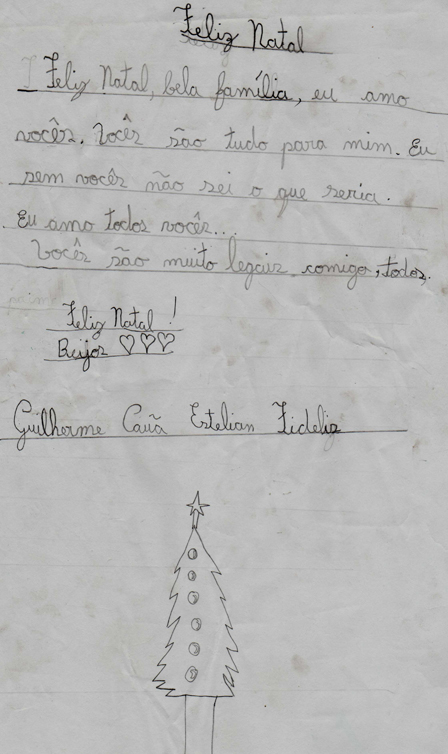 Feliz Natal
Feliz Natal, bela família, eu amo
vocês. Vocês são tudo para mim. Eu
sem vocês não sei o que seria.
Eu amo todos vocês...
Vocês são muito legais comigo, todos.
Feliz Natal!
Beijos ♡♡♡
Guilherme Cauã Estelian Fidelis